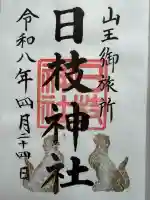 山王御旅所
日枝神社
令和八年四月二十四日